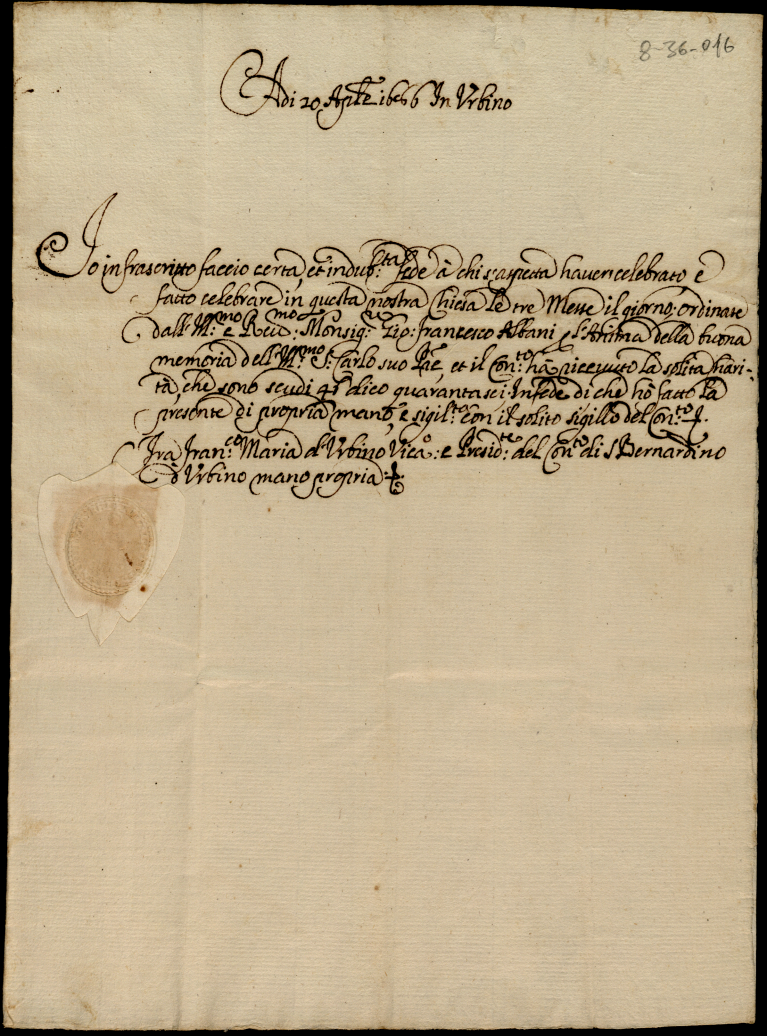 8-36-016
Adi 20 Aprile 1686 In Urbino
Io infrascritto faccio certa, et indub:ta fede à chi s'aspetta haver celebrato, e
fatto celebrare in questa nostra Chiesa le tre Messe il giorno, ordinate
dall' Ill:mo e Reu:mo Monsig:r Gio: Francesco Albani p l'Anima della buona
memoria dell' Ill:mo S: Carlo suo Pre, et il Con:to hà ricevuto la solita Chari-
tà, che sono scudi 46 dico quaranta sei. In fede di che hò fatto la
presente di propria mano, e sigil:ta con il solito sigillo del Con:to
Fra Fran:co Maria d'Urbino Vica:o e Presid:te del Con:to di S Bernardino
d'Urbino mano propria